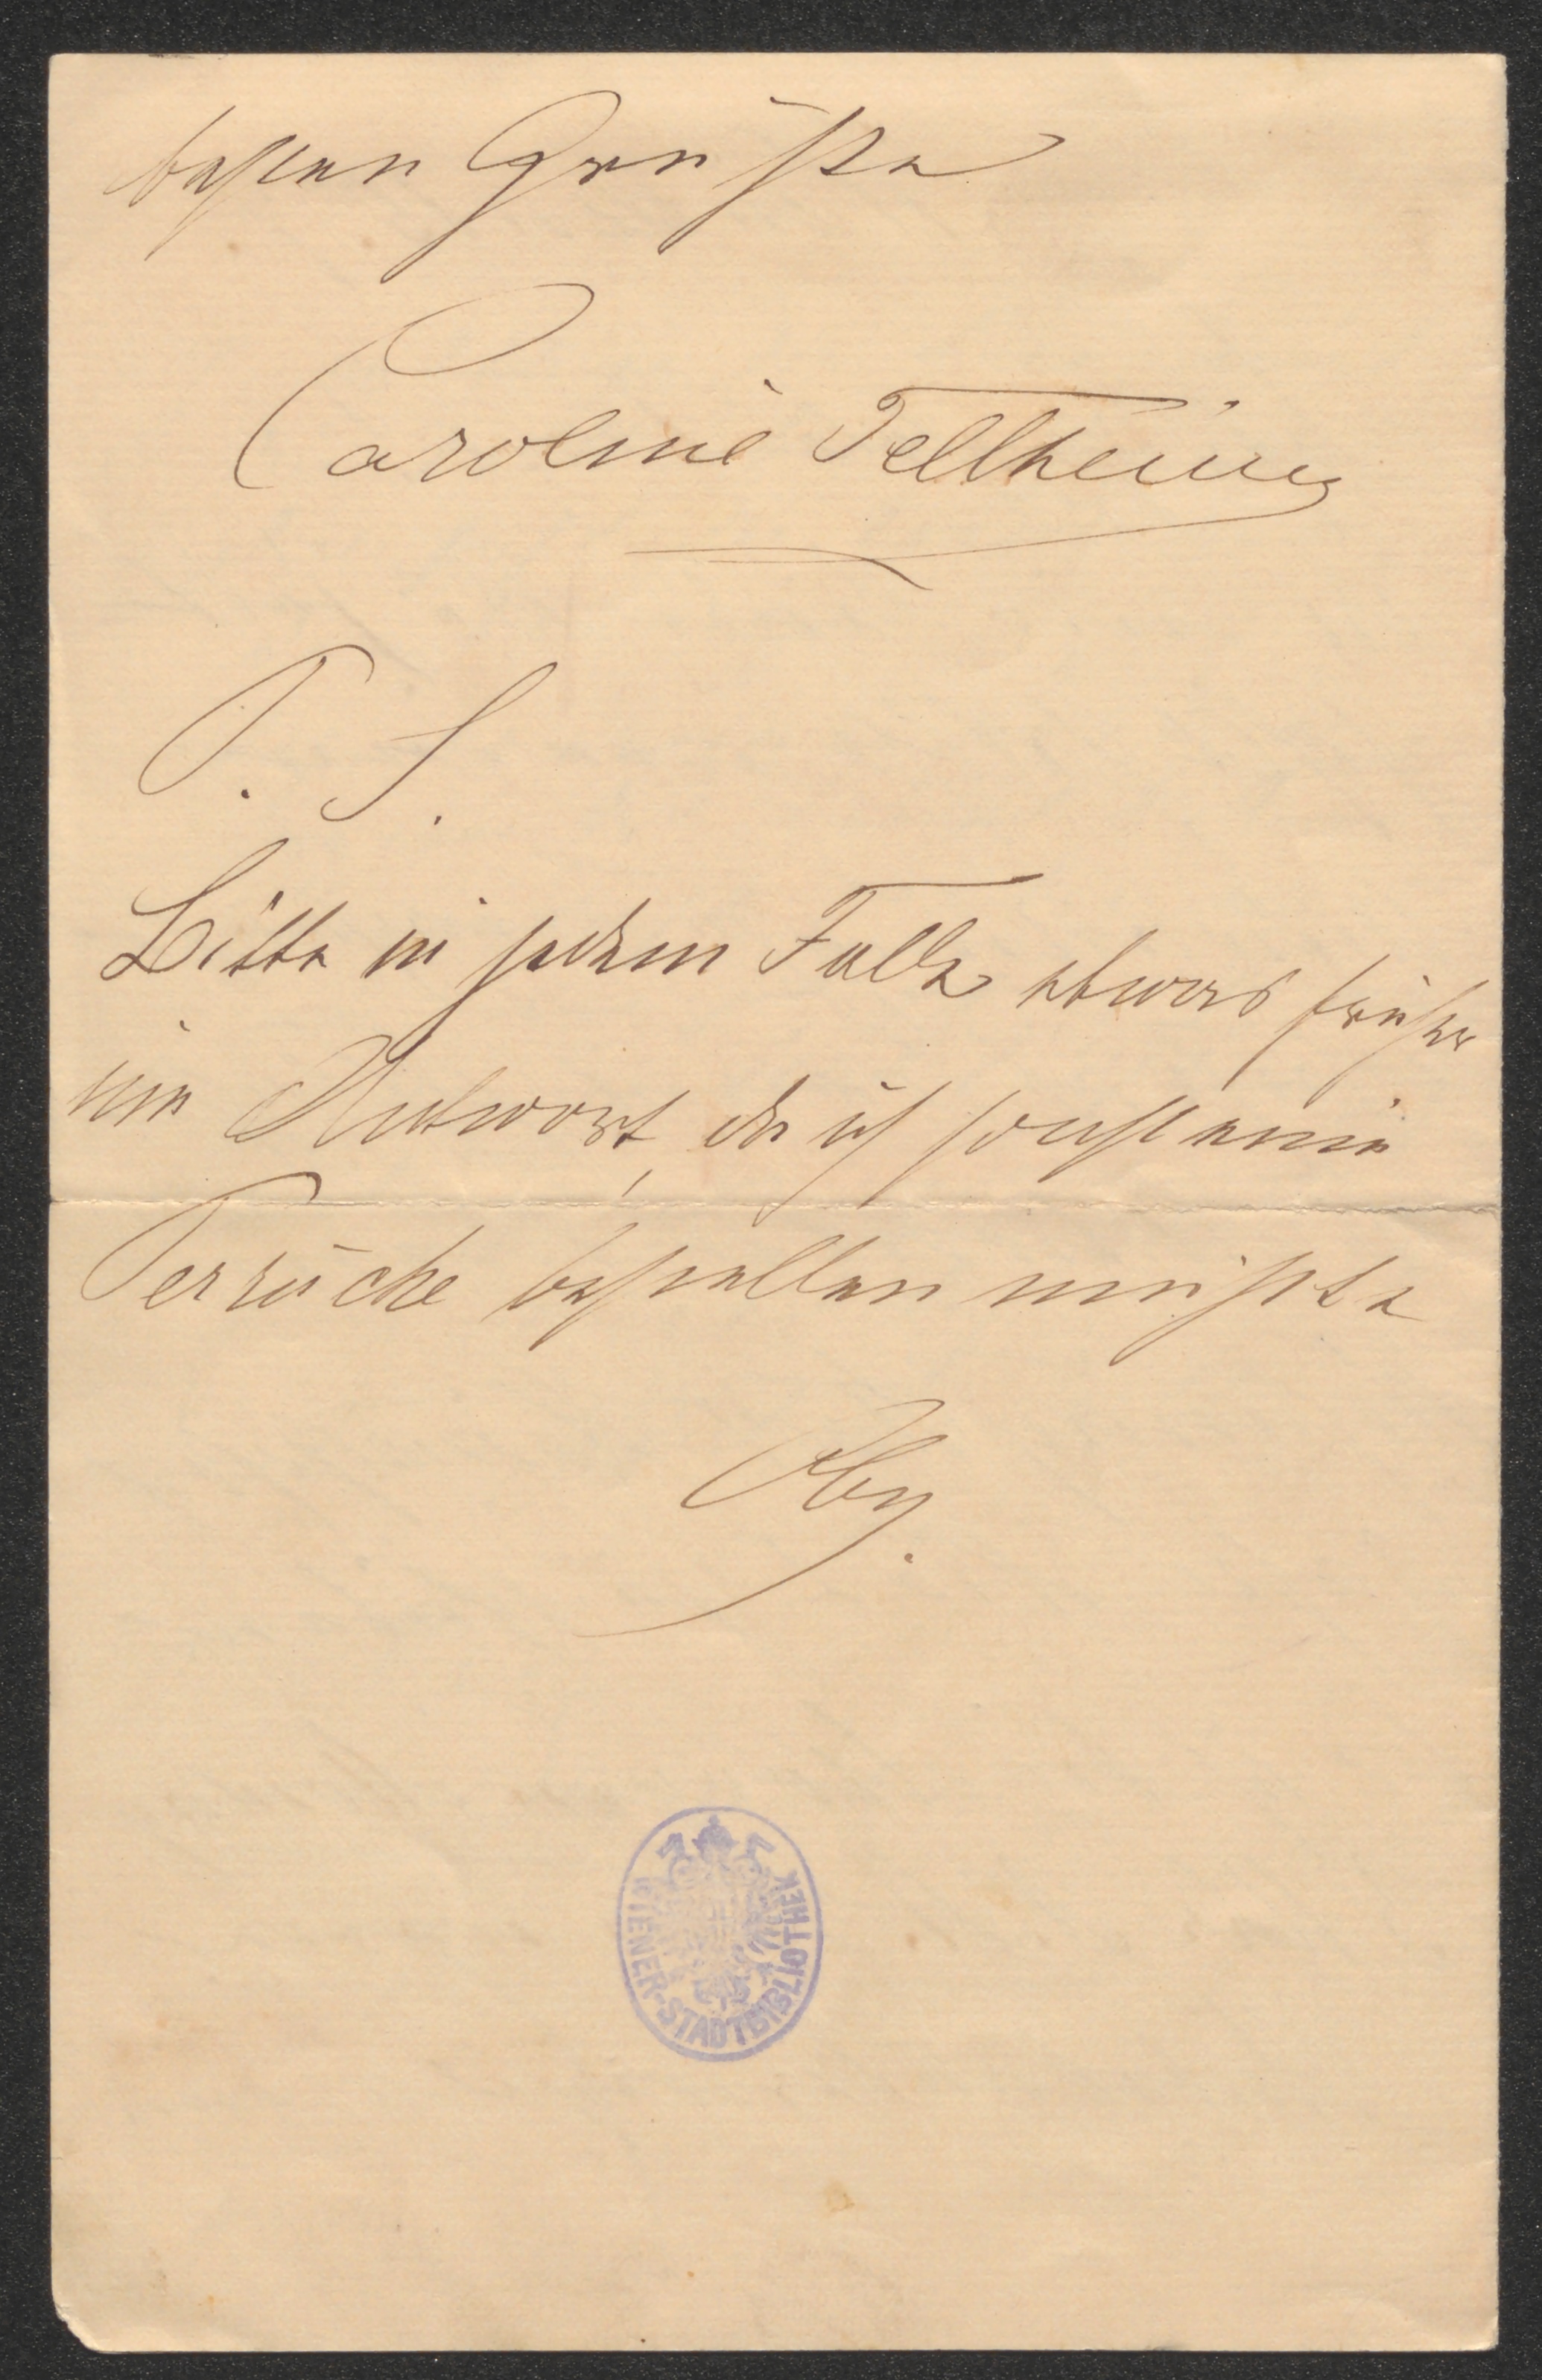 besten Grüße
Caroline Tellheim
P. S.
Bitte in jedem Falle etwas früher
um Antwort, da ich sonst eine
Perrücke bestellen müßte
Obg.
WIENER-STADTBIBLIOTHEK